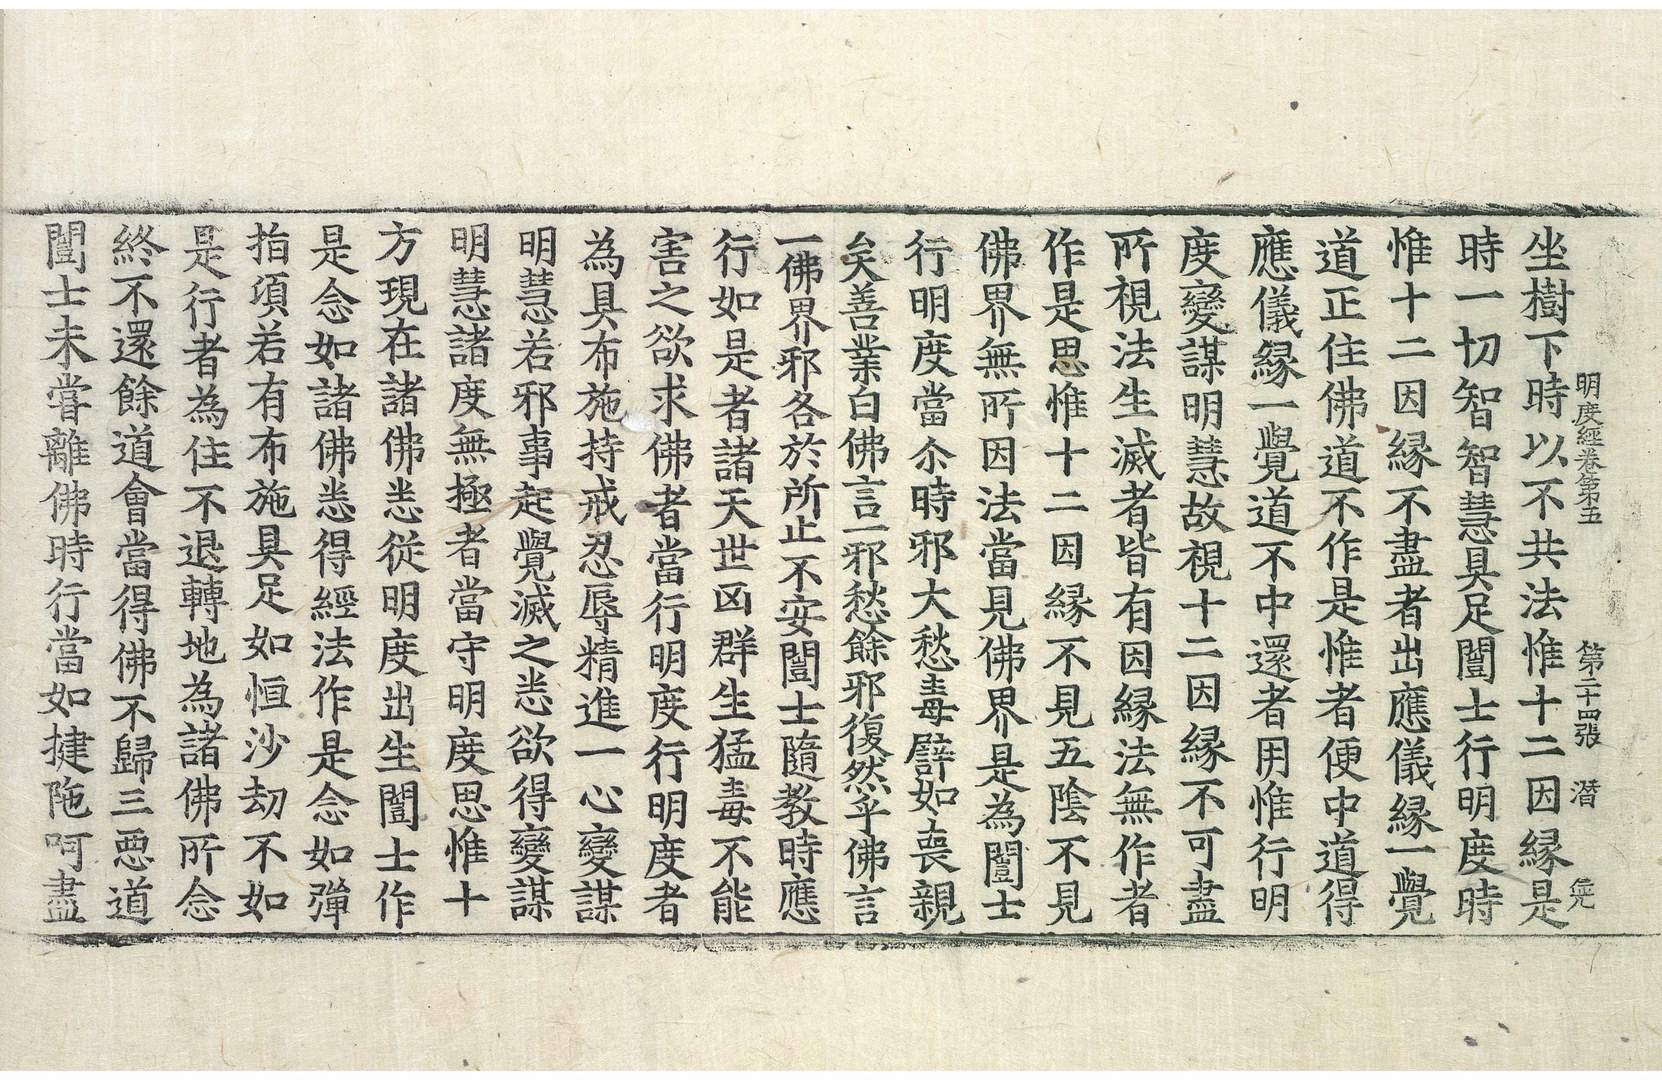 明度經卷第五 第二十四張 潛
坐樹下時以不共法惟十二因緣是
時一切智智慧具足闓士行明度時
惟十二因緣不盡者出應儀緣一覺
道正住佛道不作是惟者便中道得
應儀緣一覺道不中還者用惟行明
度變謀明慧故視十二因緣不可盡
所視法生滅者皆有因緣法無作者
作是思惟十二因緣不見五陰不見
佛界無所因法當見佛界是為闓士
行明度當尒時邪大愁毒譬如喪親
矣善業白佛言一邪愁餘邪復然乎佛言
一佛界邪各於所止不安闓士隨教時應
行如是者諸天世凶群生猛毒不能
害之欲求佛者當行明度行明度者
為具布施持戒忍辱精進一心變謀
明慧若邪事起覺滅之悉欲得變謀
明慧諸度無極者當守明度思惟十
方現在諸佛悉從明度出生闓士作
是念如諸佛悉得經法作是念如彈
指頃若有布施具足如恒沙劫不如
是行者為住不退轉地為諸佛所念
終不還餘道會當得佛不歸三惡道
闓士未嘗離佛時行當如揵陁呵盡